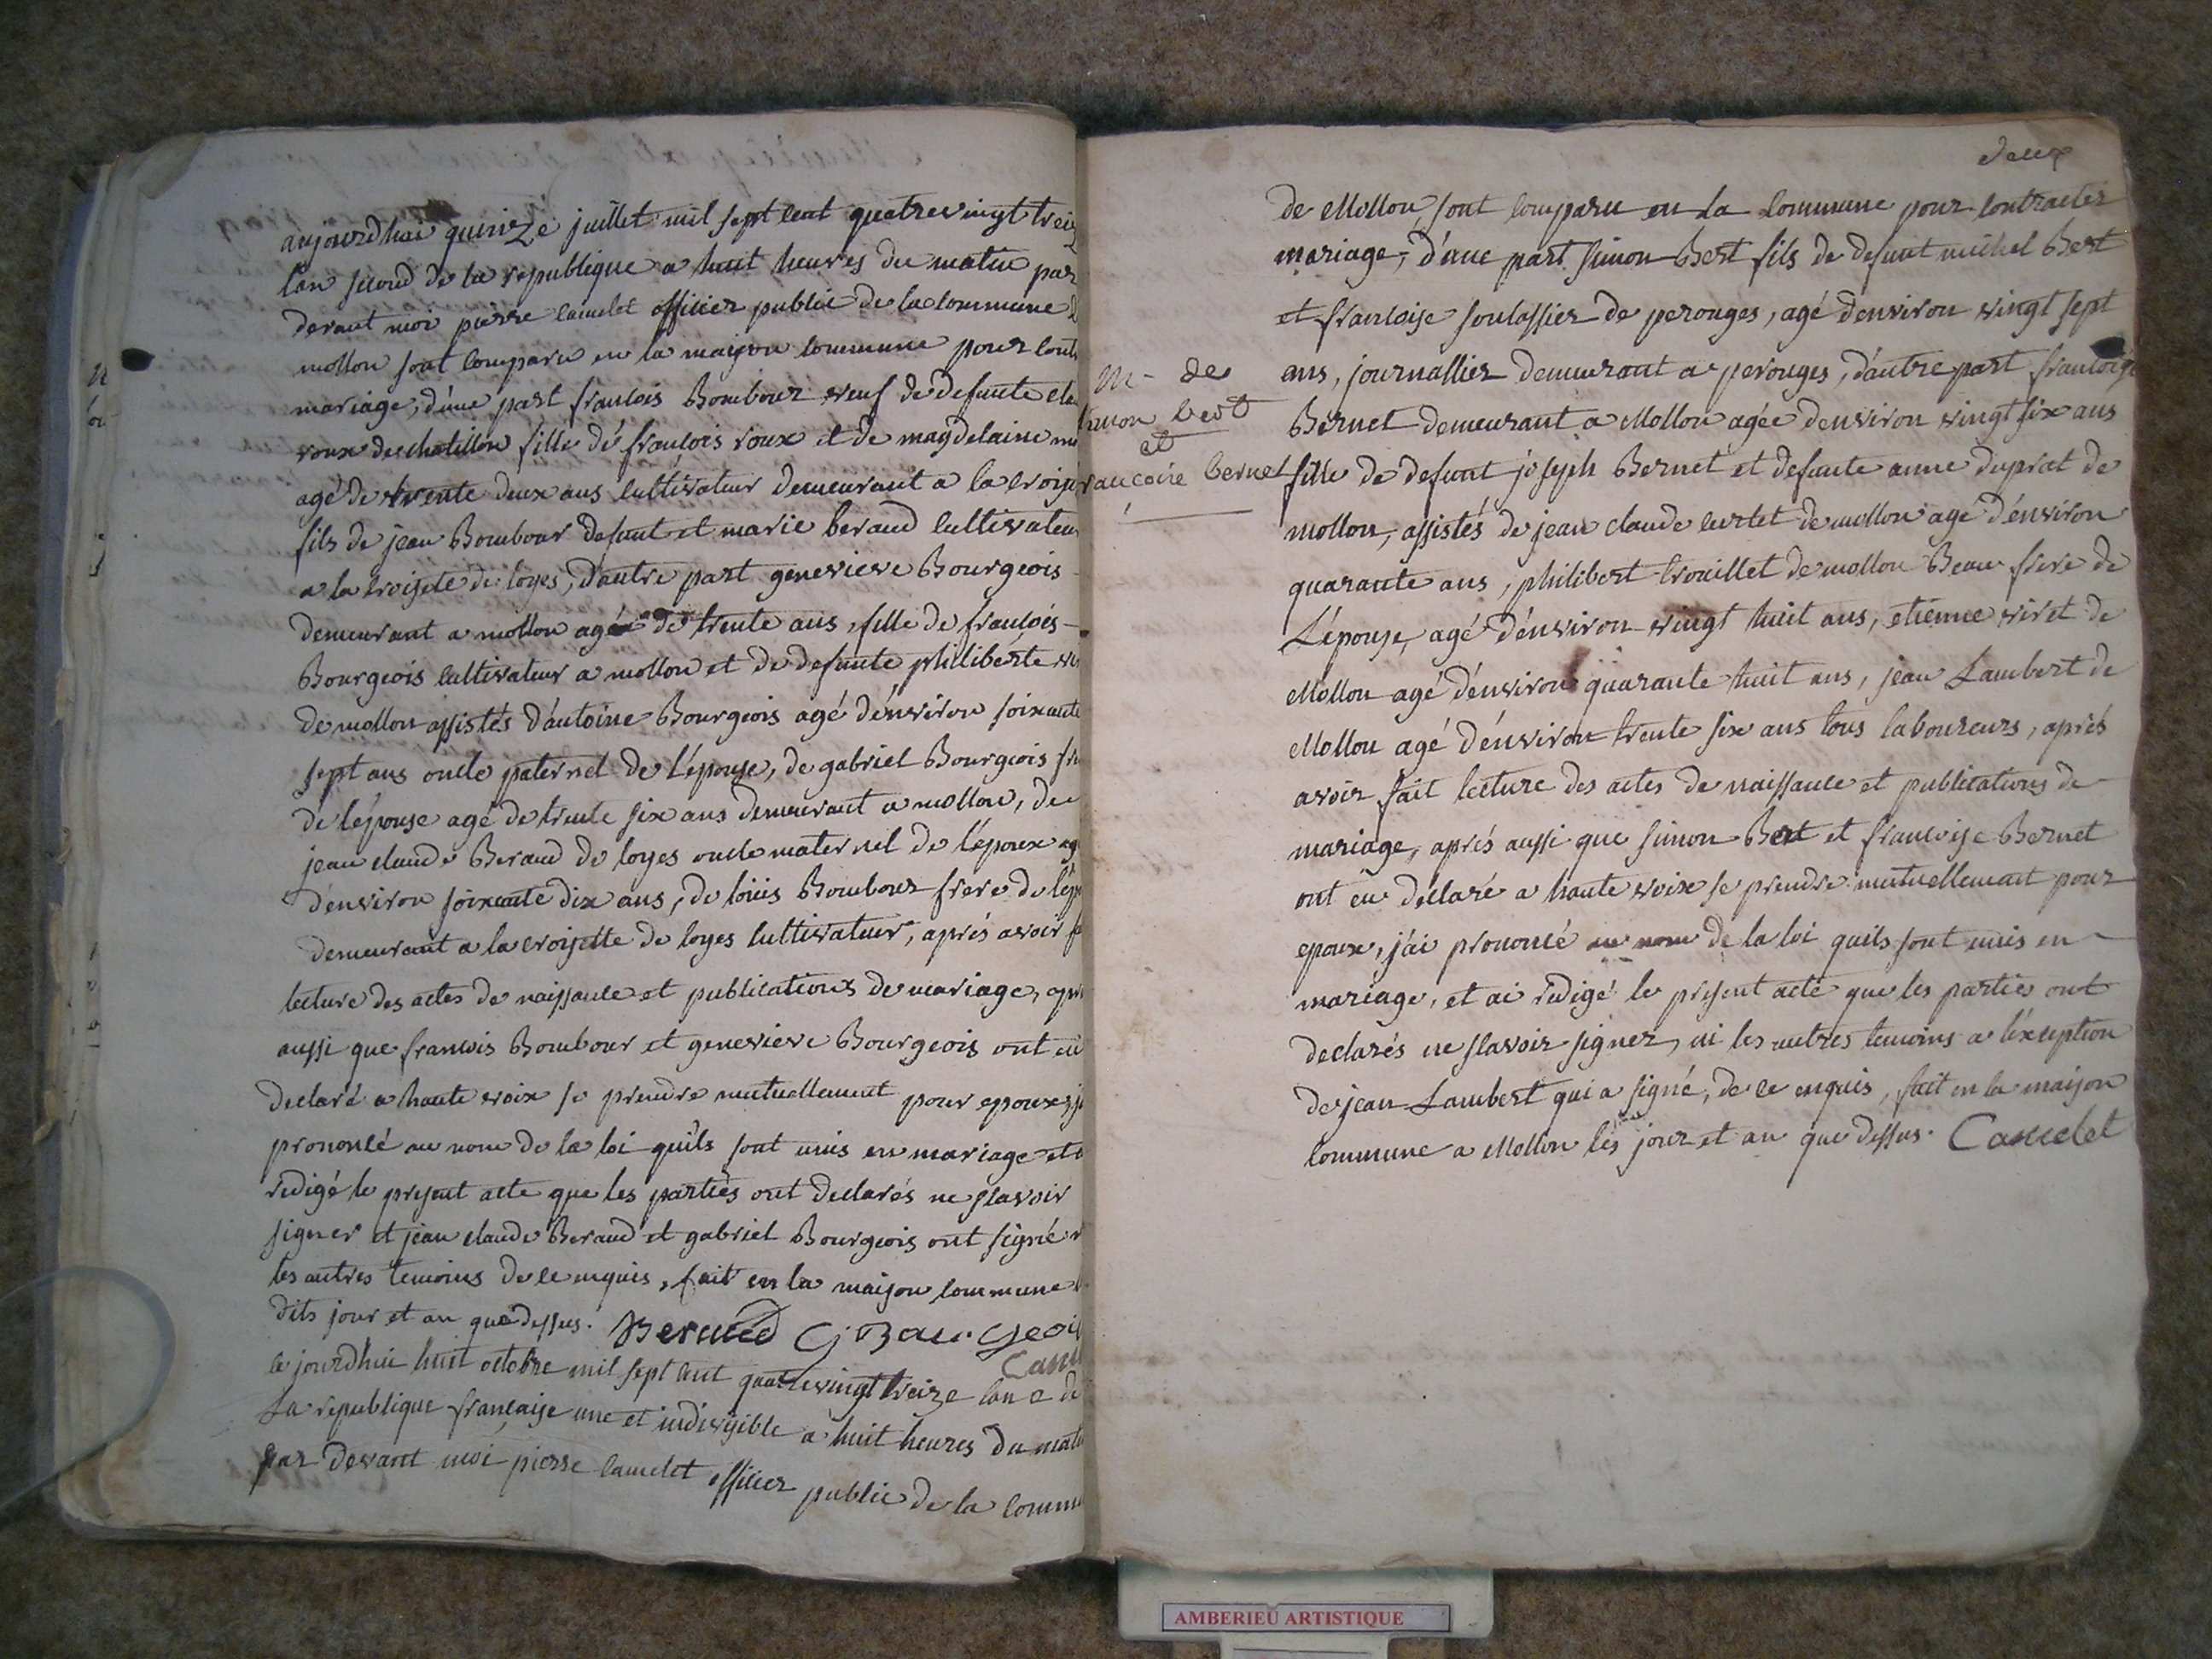 aujourdhui quinze juillet mil sept cent quatrevingt treiz
lan second de la republique a huit heures du matin par
devant moi pierre camelet officier public de la commune d
mollon sont comparu en la maison commune pour cont
mariage, d'une part francois Bombour veuf de defunte
roux de chatillon fille de francois roux et de magdelaine
agé de trente deux ans cultivateur demeurant a la croise
fils de jean Bombour defunt et marie beraud cultivateur
a la croisete de loyes, d'autre part genevieve Bourgeois
demeurant a mollon agée de trente ans, fille de francois
Bourgeois cultivateur a mollon et de defunte philiberte
de mollon assistés d'antoine Bourgeois agé d'environ soixante
sept ans oncle paternel de l'épouse, de gabriel Bourgeois fre
de l'épouse agé de trente six ans demeurant a mollon, de
jean claude Beraud de loyes oncle maternel de l'époux ag
d'environ soixante dix ans, de loüis Bombour frere de l'ép
demeurant a la croisette de loyes cultivateur, aprés avoir f
lecture des actes de naissance et publications de mariage, apr
aussi que francois Bombour et genevieve Bourgeois ont eü
declaré a haute voix se prendre mutuellement pour epoux, j
prononcé au nom de la loi qu'ils sont unis en mariage et
redigé le present acte que les parties ont declarés ne sçavoir
signer et jean claude Beraud et gabriel Bourgeois ont signé
les autres temoins de ce enquis, fait en la maison commune
dits jour et an que dessus. Beraud G Bourgeois
Came
ce jourdhui huit octobre mil sept cent quatrevingt treize lan 2 de
La republique française une et indivisible a huit heures du mati
par devant moi pierre camelet officier public de la commu
deux
de Mollon, sont comparu en la commune pour contracter
mariage, d'une part simon Bert fils de defunt michel Bert
et francoise soulassier de perouges, agé d'environ vingt sept
ans, journallier demeurant a perouges, d'autre part francoise
Bernet demeurant a Mollon agée d'environ vingt six ans
fille de defunt joseph Bernet et defunte anne duprat de
mollon, assistés de jean claude curtet de mollon agé d'environ
quarante ans, philibert trouillet de mollon Beau frere de
L'épouse, agé d'environ vingt huit ans, etienne viret de
Mollon agé d'environ quarante huit ans, jean Lambert de
Mollon agé d'environ trente six ans tous laboureurs, aprés
avoir fait lecture des actes de naissance et publications de
mariage, aprés aussi que simon Bert et francoise Bernet
ont eü declaré a haute voix se prendre mutuellement pour
epoux, j'ai prononcé au nom de la loi quils sont unis en
mariage, et ai redigé le present acte que les parties ont
declarés ne sçavoir signer, ni les autres temoins a l'exception
de jean Lambert qui a signé, de ce enquis, fait en la maison
commune a Mollon les jour et an que dessus. Camelet
M. de
imon bert
et
rancoise bernet
AMBERIEU ARTISTIQUE